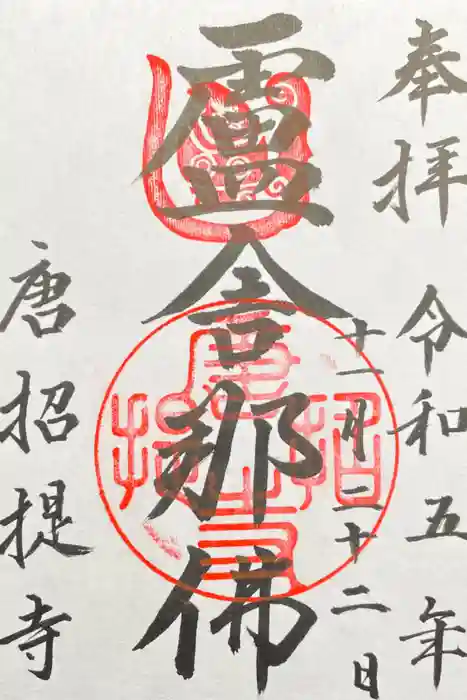 奉拝
令和五年
十一月二十二日
盧舎那佛
唐招提寺
唐招提寺